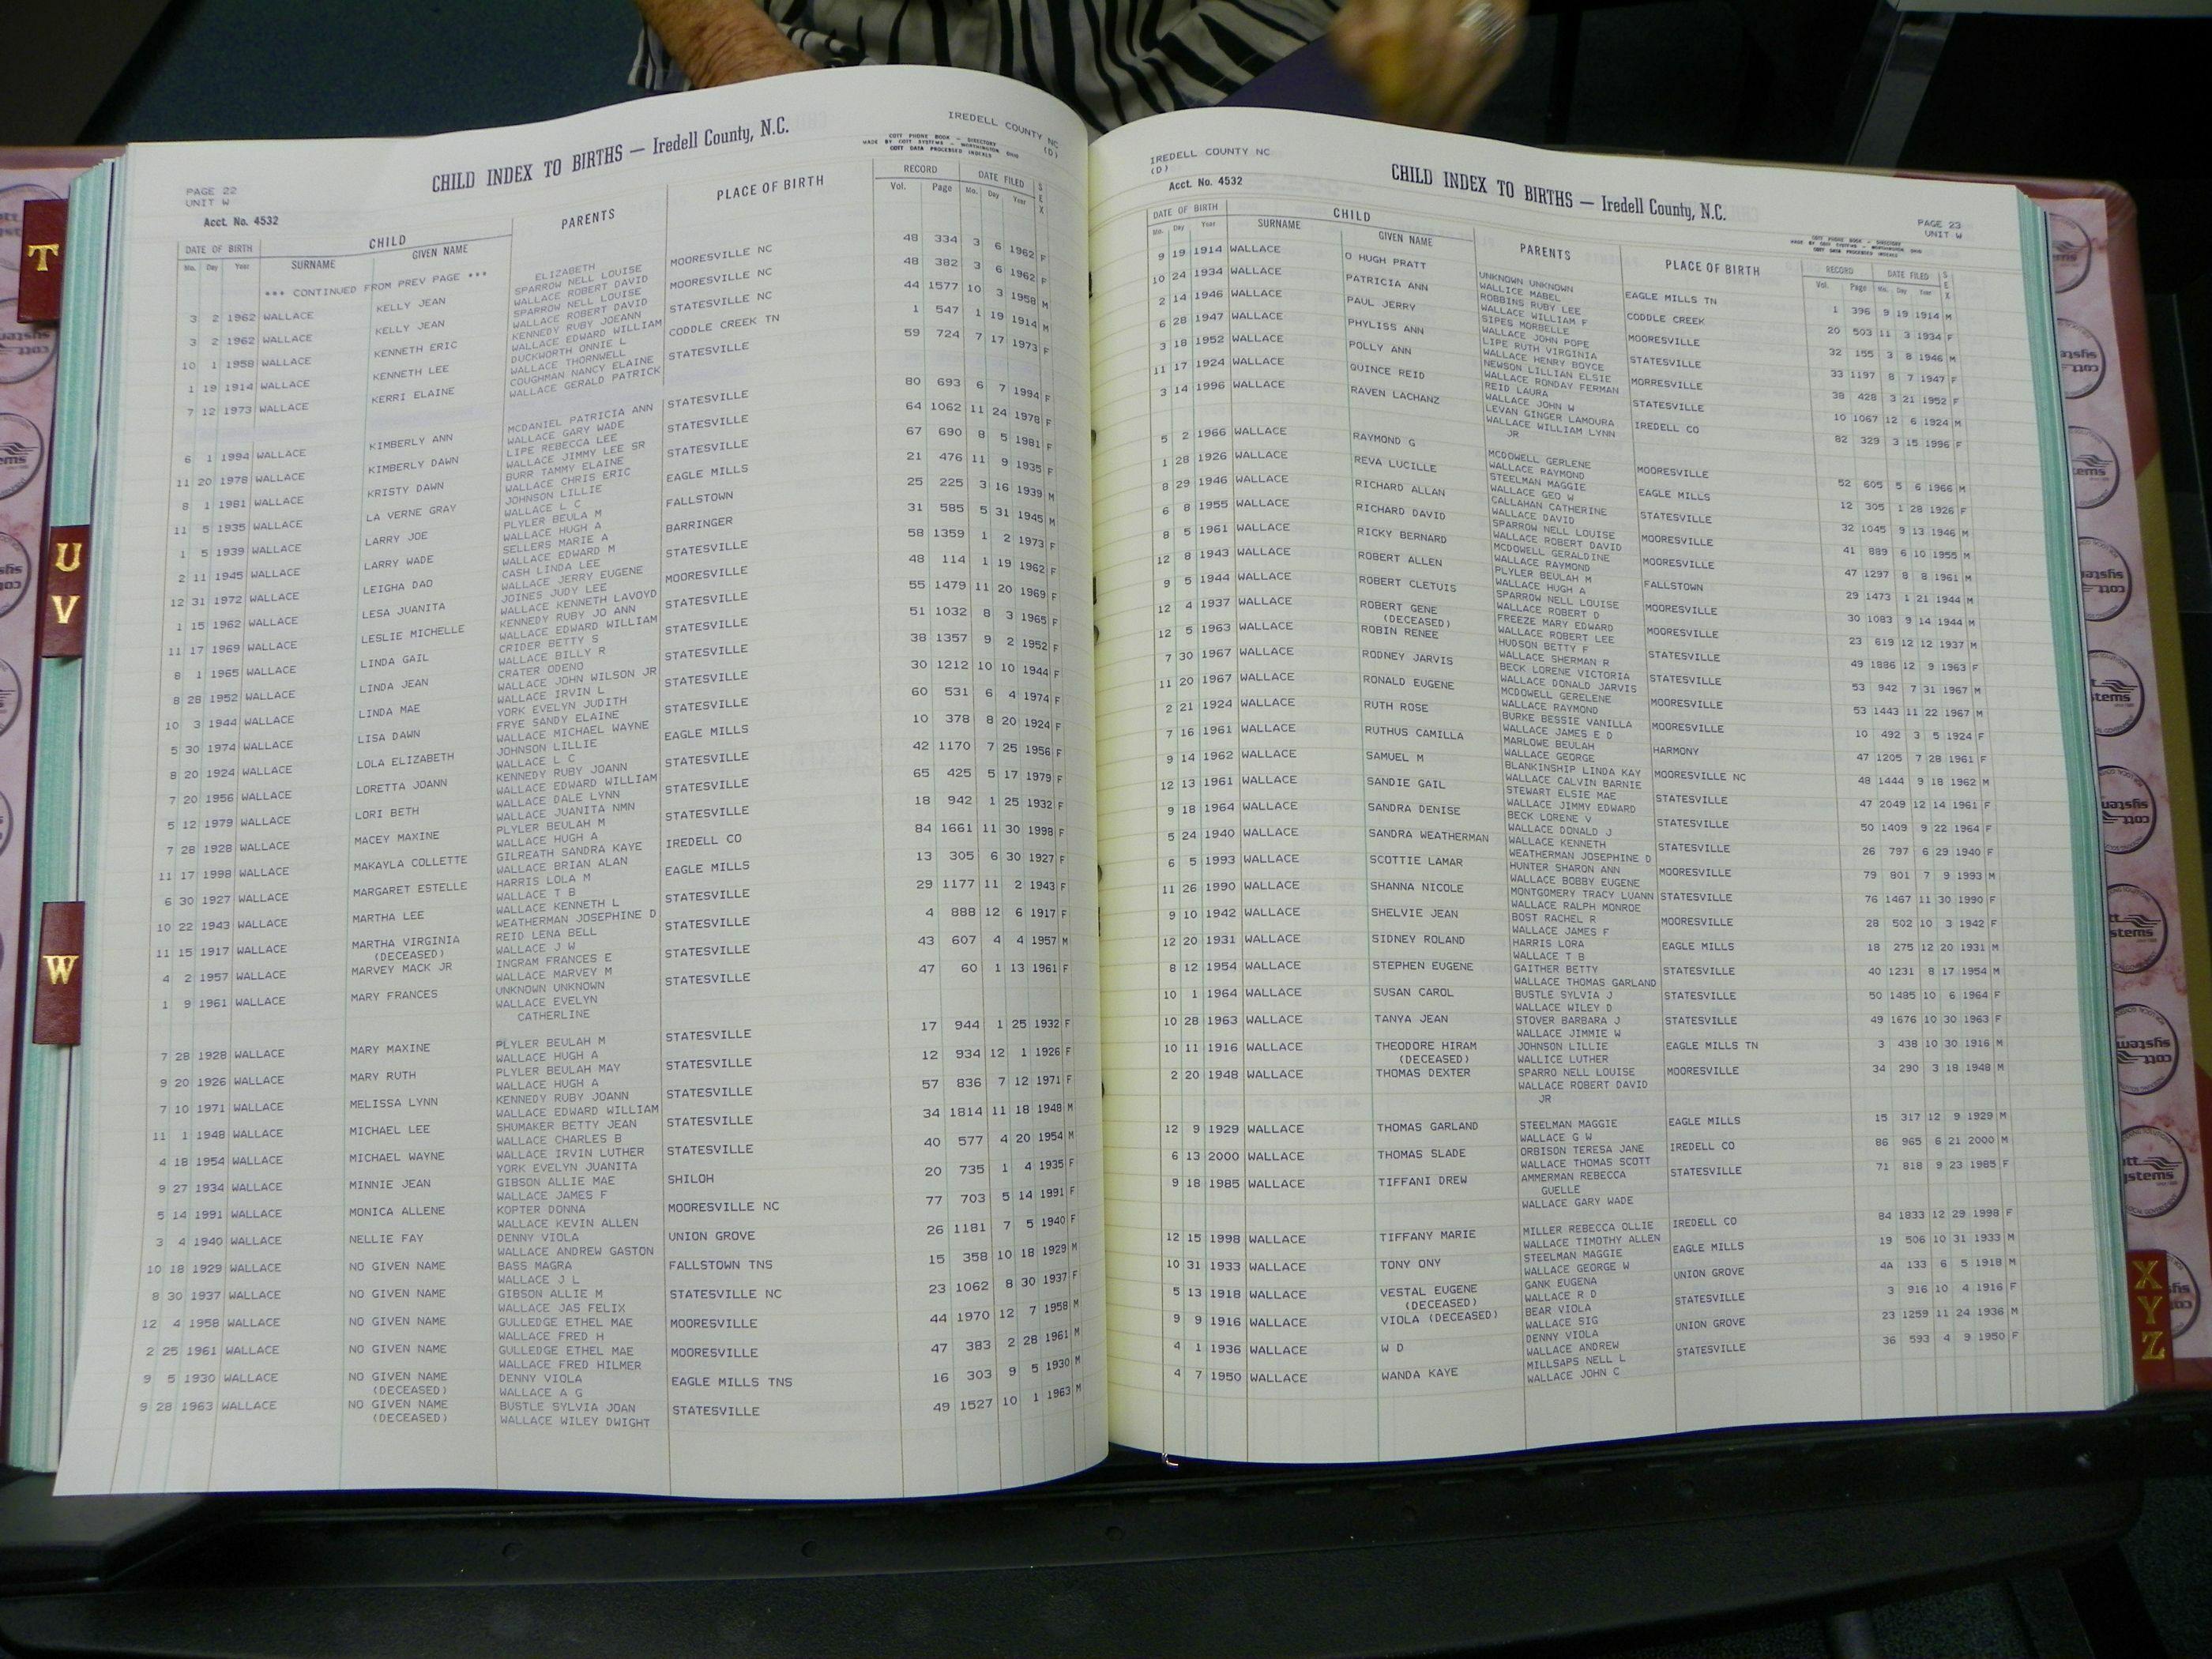 T
U
V
W
X
Y
Z
PAGE 22
UNIT W
Acct. No. 4532
CHILD INDEX TO BIRTHS — Iredell County, N.C.
IREDELL COUNTY NC
(D)
COTT PHONE BOOK — DIRECTORY
MADE BY COTT SYSTEMS — WORTHINGTON, OHIO
COTT DATA PROCESSED INDEXES
DATE OF BIRTH CHILD PARENTS PLACE OF BIRTH RECORD DATE FILED SEX
Mo. Day Year SURNAME GIVEN NAME Vol. Page Mo. Day Year
*** CONTINUED FROM PREV PAGE *** ELIZABETH
3 2 1962 WALLACE KELLY JEAN SPARROW NELL LOUISE MOORESVILLE NC 48 334 3 6 1962 F
WALLACE ROBERT DAVID
3 2 1962 WALLACE KELLY JEAN SPARROW NELL LOUISE MOORESVILLE NC 48 382 3 6 1962 F
WALLACE ROBERT DAVID
10 1 1958 WALLACE KENNETH ERIC KENNEDY RUBY JOEANN STATESVILLE NC 44 1577 10 3 1958 M
WALLACE EDWARD WILLIAM
1 19 1914 WALLACE KENNETH LEE DUCKWORTH ONNIE L CODDLE CREEK TN 1 547 1 19 1914 M
WALLACE THORNWELL
7 12 1973 WALLACE KERRI ELAINE COUGHMAN NANCY ELAINE STATESVILLE 59 724 7 17 1973 F
WALLACE GERALD PATRICK
6 1 1994 WALLACE KIMBERLY ANN MCDANIEL PATRICIA ANN STATESVILLE 80 693 6 7 1994 F
WALLACE GARY WADE
11 20 1978 WALLACE KIMBERLY DAWN LIPE REBECCA LEE STATESVILLE 64 1062 11 24 1978 F
WALLACE JIMMY LEE SR
8 1 1981 WALLACE KRISTY DAWN BURR TAMMY ELAINE STATESVILLE 67 690 8 5 1981 F
WALLACE CHRIS ERIC
11 5 1935 WALLACE LA VERNE GRAY JOHNSON LILLIE EAGLE MILLS 21 476 11 9 1935 F
WALLACE L C
1 5 1939 WALLACE LARRY JOE PLYLER BEULA M FALLSTOWN 25 225 3 16 1939 M
WALLACE HUGH A
2 11 1945 WALLACE LARRY WADE SELLERS MARIE A BARRINGER 31 585 5 31 1945 M
WALLACE EDWARD M
12 31 1972 WALLACE LEIGHA DAO CASH LINDA LEE STATESVILLE 58 1359 1 2 1973 F
WALLACE JERRY EUGENE
1 15 1962 WALLACE LESA JUANITA JOINES JUDY LEE MOORESVILLE 48 114 1 19 1962 F
WALLACE KENNETH LAVOYD
11 17 1969 WALLACE LESLIE MICHELLE KENNEDY RUBY JO ANN STATESVILLE 55 1479 11 20 1969 F
WALLACE EDWARD WILLIAM
8 1 1965 WALLACE LINDA GAIL CRIDER BETTY S STATESVILLE 51 1032 8 3 1965 F
WALLACE BILLY R
8 28 1952 WALLACE LINDA JEAN CRATER ODENO STATESVILLE 38 1357 9 2 1952 F
WALLACE JOHN WILSON JR
10 3 1944 WALLACE LINDA MAE WALLACE IRVIN L STATESVILLE 30 1212 10 10 1944 F
YORK EVELYN JUDITH
5 30 1974 WALLACE LISA DAWN FRYE SANDY ELAINE STATESVILLE 60 531 6 4 1974 F
WALLACE MICHAEL WAYNE
8 20 1924 WALLACE LOLA ELIZABETH JOHNSON LILLIE EAGLE MILLS 10 378 8 20 1924 F
WALLACE L C
7 20 1956 WALLACE LORETTA JOANN KENNEDY RUBY JOANN STATESVILLE 42 1170 7 25 1956 F
WALLACE EDWARD WILLIAM
5 12 1979 WALLACE LORI BETH WALLACE DALE LYNN STATESVILLE 65 425 5 17 1979 F
WALLACE JUANITA NMN
7 28 1928 WALLACE MACEY MAXINE PLYLER BEULAH M STATESVILLE 18 942 1 25 1932 F
WALLACE HUGH A
11 17 1998 WALLACE MAKAYLA COLLETTE GILREATH SANDRA KAYE IREDELL CO 84 1661 11 30 1998 F
WALLACE BRIAN ALAN
6 30 1927 WALLACE MARGARET ESTELLE HARRIS LOLA M EAGLE MILLS 13 305 6 30 1927 F
WALLACE T B
10 22 1943 WALLACE MARTHA LEE WALLACE KENNETH L STATESVILLE 29 1177 11 2 1943 F
WEATHERMAN JOSEPHINE D
11 15 1917 WALLACE MARTHA VIRGINIA REID LENA BELL STATESVILLE 4 888 12 6 1917 F
(DECEASED) WALLACE J W
4 2 1957 WALLACE MARVEY MACK JR INGRAM FRANCES E STATESVILLE 43 607 4 4 1957 M
WALLACE MARVEY M
1 9 1961 WALLACE MARY FRANCES UNKNOWN UNKNOWN STATESVILLE 47 60 1 13 1961 F
WALLACE EVELYN
CATHERLINE
7 28 1928 WALLACE MARY MAXINE PLYLER BEULAH M STATESVILLE 17 944 1 25 1932 F
WALLACE HUGH A
9 20 1926 WALLACE MARY RUTH PLYLER BEULAH MAY STATESVILLE 12 934 12 1 1926 F
WALLACE HUGH A
7 10 1971 WALLACE MELISSA LYNN KENNEDY RUBY JOANN STATESVILLE 57 836 7 12 1971 F
WALLACE EDWARD WILLIAM
11 1 1948 WALLACE MICHAEL LEE SHUMAKER BETTY JEAN STATESVILLE 34 1814 11 18 1948 M
WALLACE CHARLES B
4 18 1954 WALLACE MICHAEL WAYNE WALLACE IRVIN LUTHER STATESVILLE 40 577 4 20 1954 M
YORK EVELYN JUANITA
9 27 1934 WALLACE MINNIE JEAN GIBSON ALLIE MAE SHILOH 20 735 1 4 1935 F
WALLACE JAMES F
5 14 1991 WALLACE MONICA ALLENE KOPTER DONNA MOORESVILLE NC 77 703 5 14 1991 F
WALLACE KEVIN ALLEN
3 4 1940 WALLACE NELLIE FAY DENNY VIOLA UNION GROVE 26 1181 7 5 1940 F
WALLACE ANDREW GASTON
10 18 1929 WALLACE NO GIVEN NAME BASS MAGRA FALLSTOWN TNS 15 358 10 18 1929 M
WALLACE J L
8 30 1937 WALLACE NO GIVEN NAME GIBSON ALLIE M STATESVILLE NC 23 1062 8 30 1937 F
WALLACE JAS FELIX
12 4 1958 WALLACE NO GIVEN NAME GULLEDGE ETHEL MAE MOORESVILLE 44 1970 12 7 1958 M
WALLACE FRED H
2 25 1961 WALLACE NO GIVEN NAME GULLEDGE ETHEL MAE MOORESVILLE 47 383 2 28 1961 M
WALLACE FRED HILMER
9 5 1930 WALLACE NO GIVEN NAME DENNY VIOLA EAGLE MILLS TNS 16 303 9 5 1930 M
(DECEASED) WALLACE A G
9 28 1963 WALLACE NO GIVEN NAME BUSTLE SYLVIA JOAN STATESVILLE 49 1527 10 1 1963 M
(DECEASED) WALLACE WILEY DWIGHT
IREDELL COUNTY NC
(D)
Acct. No. 4532
CHILD INDEX TO BIRTHS — Iredell County, N.C.
PAGE 23
UNIT W
COTT PHONE BOOK — DIRECTORY
MADE BY COTT SYSTEMS — WORTHINGTON, OHIO
COTT DATA PROCESSED INDEXES
DATE OF BIRTH CHILD PARENTS PLACE OF BIRTH RECORD DATE FILED SEX
Mo. Day Year SURNAME GIVEN NAME Vol. Page Mo. Day Year
9 19 1914 WALLACE O HUGH PRATT UNKNOWN UNKNOWN EAGLE MILLS TN 1 396 9 19 1914 M
WALLICE MABEL
10 24 1934 WALLACE PATRICIA ANN ROBBINS RUBY LEE CODDLE CREEK 20 503 11 3 1934 F
WALLACE WILLIAM F
2 14 1946 WALLACE PAUL JERRY SIPES MORBELLE MOORESVILLE 32 155 3 8 1946 M
WALLACE JOHN POPE
6 28 1947 WALLACE PHYLISS ANN LIPE RUTH VIRGINIA STATESVILLE 33 1197 8 7 1947 F
WALLACE HENRY BOYCE
3 18 1952 WALLACE POLLY ANN NEWSON LILLIAN ELSIE MORRESVILLE 38 428 3 21 1952 F
WALLACE RONDAY FERMAN
11 17 1924 WALLACE QUINCE REID REID LAURA STATESVILLE 10 1067 12 6 1924 M
WALLACE JOHN W
3 14 1996 WALLACE RAVEN LACHANZ LEVAN GINGER LAMOURA IREDELL CO 82 329 3 15 1996 F
WALLACE WILLIAM LYNN
JR
5 2 1966 WALLACE RAYMOND G MCDOWELL GERLENE MOORESVILLE 52 605 5 6 1966 M
WALLACE RAYMOND
1 28 1926 WALLACE REVA LUCILLE STEELMAN MAGGIE EAGLE MILLS 12 305 1 28 1926 F
WALLACE GEO W
8 29 1946 WALLACE RICHARD ALLAN CALLAHAN CATHERINE STATESVILLE 32 1045 9 13 1946 M
WALLACE DAVID
6 8 1955 WALLACE RICHARD DAVID SPARROW NELL LOUISE MOORESVILLE 41 889 6 10 1955 M
WALLACE ROBERT DAVID
8 5 1961 WALLACE RICKY BERNARD MCDOWELL GERALDINE MOORESVILLE 47 1297 8 8 1961 M
WALLACE RAYMOND
12 8 1943 WALLACE ROBERT ALLEN PLYLER BEULAH M FALLSTOWN 29 1473 1 21 1944 M
WALLACE HUGH A
9 5 1944 WALLACE ROBERT CLETUIS SPARROW NELL LOUISE MOORESVILLE 30 1083 9 14 1944 M
WALLACE ROBERT D
12 4 1937 WALLACE ROBERT GENE FREEZE MARY EDWARD MOORESVILLE 23 619 12 12 1937 M
(DECEASED) WALLACE ROBERT LEE
12 5 1963 WALLACE ROBIN RENEE HUDSON BETTY F STATESVILLE 49 1886 12 9 1963 F
WALLACE SHERMAN R
7 30 1967 WALLACE RODNEY JARVIS BECK LORENE VICTORIA STATESVILLE 53 942 7 31 1967 M
WALLACE DONALD JARVIS
11 20 1967 WALLACE RONALD EUGENE MCDOWELL GERELENE MOORESVILLE 53 1443 11 22 1967 M
WALLACE RAYMOND
2 21 1924 WALLACE RUTH ROSE BURKE BESSIE VANILLA MOORESVILLE 10 492 3 5 1924 F
WALLACE JAMES E D
7 16 1961 WALLACE RUTHUS CAMILLA MARLOWE BEULAH HARMONY 47 1205 7 28 1961 F
WALLACE GEORGE
9 14 1962 WALLACE SAMUEL M BLANKINSHIP LINDA KAY MOORESVILLE NC 48 1444 9 18 1962 M
WALLACE CALVIN BARNIE
12 13 1961 WALLACE SANDIE GAIL STEWART ELSIE MAE STATESVILLE 47 2049 12 14 1961 F
WALLACE JIMMY EDWARD
9 18 1964 WALLACE SANDRA DENISE BECK LORENE V STATESVILLE 50 1409 9 22 1964 F
WALLACE DONALD J
5 24 1940 WALLACE SANDRA WEATHERMAN WALLACE KENNETH STATESVILLE 26 797 6 29 1940 F
WEATHERMAN JOSEPHINE D
6 5 1993 WALLACE SCOTTIE LAMAR HUNTER SHARON ANN MOORESVILLE 79 801 7 9 1993 M
WALLACE BOBBY EUGENE
11 26 1990 WALLACE SHANNA NICOLE MONTGOMERY TRACY LUANN STATESVILLE 76 1467 11 30 1990 F
WALLACE RALPH MONROE
9 10 1942 WALLACE SHELVIE JEAN BOST RACHEL R MOORESVILLE 28 502 10 3 1942 F
WALLACE JAMES F
12 20 1931 WALLACE SIDNEY ROLAND HARRIS LORA EAGLE MILLS 18 275 12 20 1931 M
WALLACE T B
8 12 1954 WALLACE STEPHEN EUGENE GAITHER BETTY STATESVILLE 40 1231 8 17 1954 M
WALLACE THOMAS GARLAND
10 1 1964 WALLACE SUSAN CAROL BUSTLE SYLVIA J STATESVILLE 50 1485 10 6 1964 F
WALLACE WILEY D
10 28 1963 WALLACE TANYA JEAN STOVER BARBARA J STATESVILLE 49 1676 10 30 1963 F
WALLACE JIMMIE W
10 11 1916 WALLACE THEODORE HIRAM JOHNSON LILLIE EAGLE MILLS TN 3 438 10 30 1916 M
(DECEASED) WALLICE LUTHER
2 20 1948 WALLACE THOMAS DEXTER SPARRO NELL LOUISE MOORESVILLE 34 290 3 18 1948 M
WALLACE ROBERT DAVID
JR
12 9 1929 WALLACE THOMAS GARLAND STEELMAN MAGGIE EAGLE MILLS 15 317 12 9 1929 M
WALLACE G W
6 13 2000 WALLACE THOMAS SLADE ORBISON TERESA JANE IREDELL CO 86 965 6 21 2000 M
WALLACE THOMAS SCOTT
9 18 1985 WALLACE TIFFANI DREW AMMERMAN REBECCA STATESVILLE 71 818 9 23 1985 F
GUELLE
WALLACE GARY WADE
12 15 1998 WALLACE TIFFANY MARIE MILLER REBECCA OLLIE IREDELL CO 84 1833 12 29 1998 F
WALLACE TIMOTHY ALLEN
10 31 1933 WALLACE TONY ONY STEELMAN MAGGIE EAGLE MILLS 19 506 10 31 1933 M
WALLACE GEORGE W
5 13 1918 WALLACE VESTAL EUGENE GANK EUGENA UNION GROVE 4A 133 6 5 1918 M
(DECEASED) WALLACE R D
9 9 1916 WALLACE VIOLA (DECEASED) BEAR VIOLA STATESVILLE 3 916 10 4 1916 F
WALLACE SIG
4 1 1936 WALLACE W D DENNY VIOLA UNION GROVE 23 1259 11 24 1936 M
WALLACE ANDREW
4 7 1950 WALLACE WANDA KAYE MILLSAPS NELL L STATESVILLE 36 593 4 9 1950 F
WALLACE JOHN C